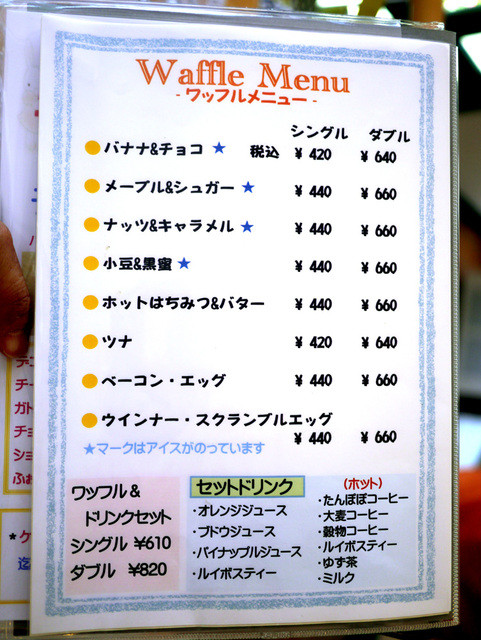 Waffle Menu
- ワッフルメニュー -
シングル ダブル
バナナ&チョコ ★ 税込 ¥ 420 ¥ 640
メープル&シュガー ★ ¥ 440 ¥ 660
ナッツ&キャラメル ★ ¥ 440 ¥ 660
小豆&黒蜜 ★ ¥ 440 ¥ 660
ホットはちみつ&バター ¥ 440 ¥ 660
ツナ ¥ 420 ¥ 640
ベーコン・エッグ ¥ 440 ¥ 660
ウインナー・スクランブルエッグ
¥ 440 ¥ 660
★マークはアイスがのっています
ワッフル &
ドリンクセット
シングル ¥610
ダブル ¥820
セットドリンク
・オレンジジュース
・ブドウジュース
・パイナップルジュース
・ルイボスティー
(ホット)
・たんぽぽコーヒー
・大麦コーヒー
・穀物コーヒー
・ルイボスティー
・ゆず茶
・ミルク